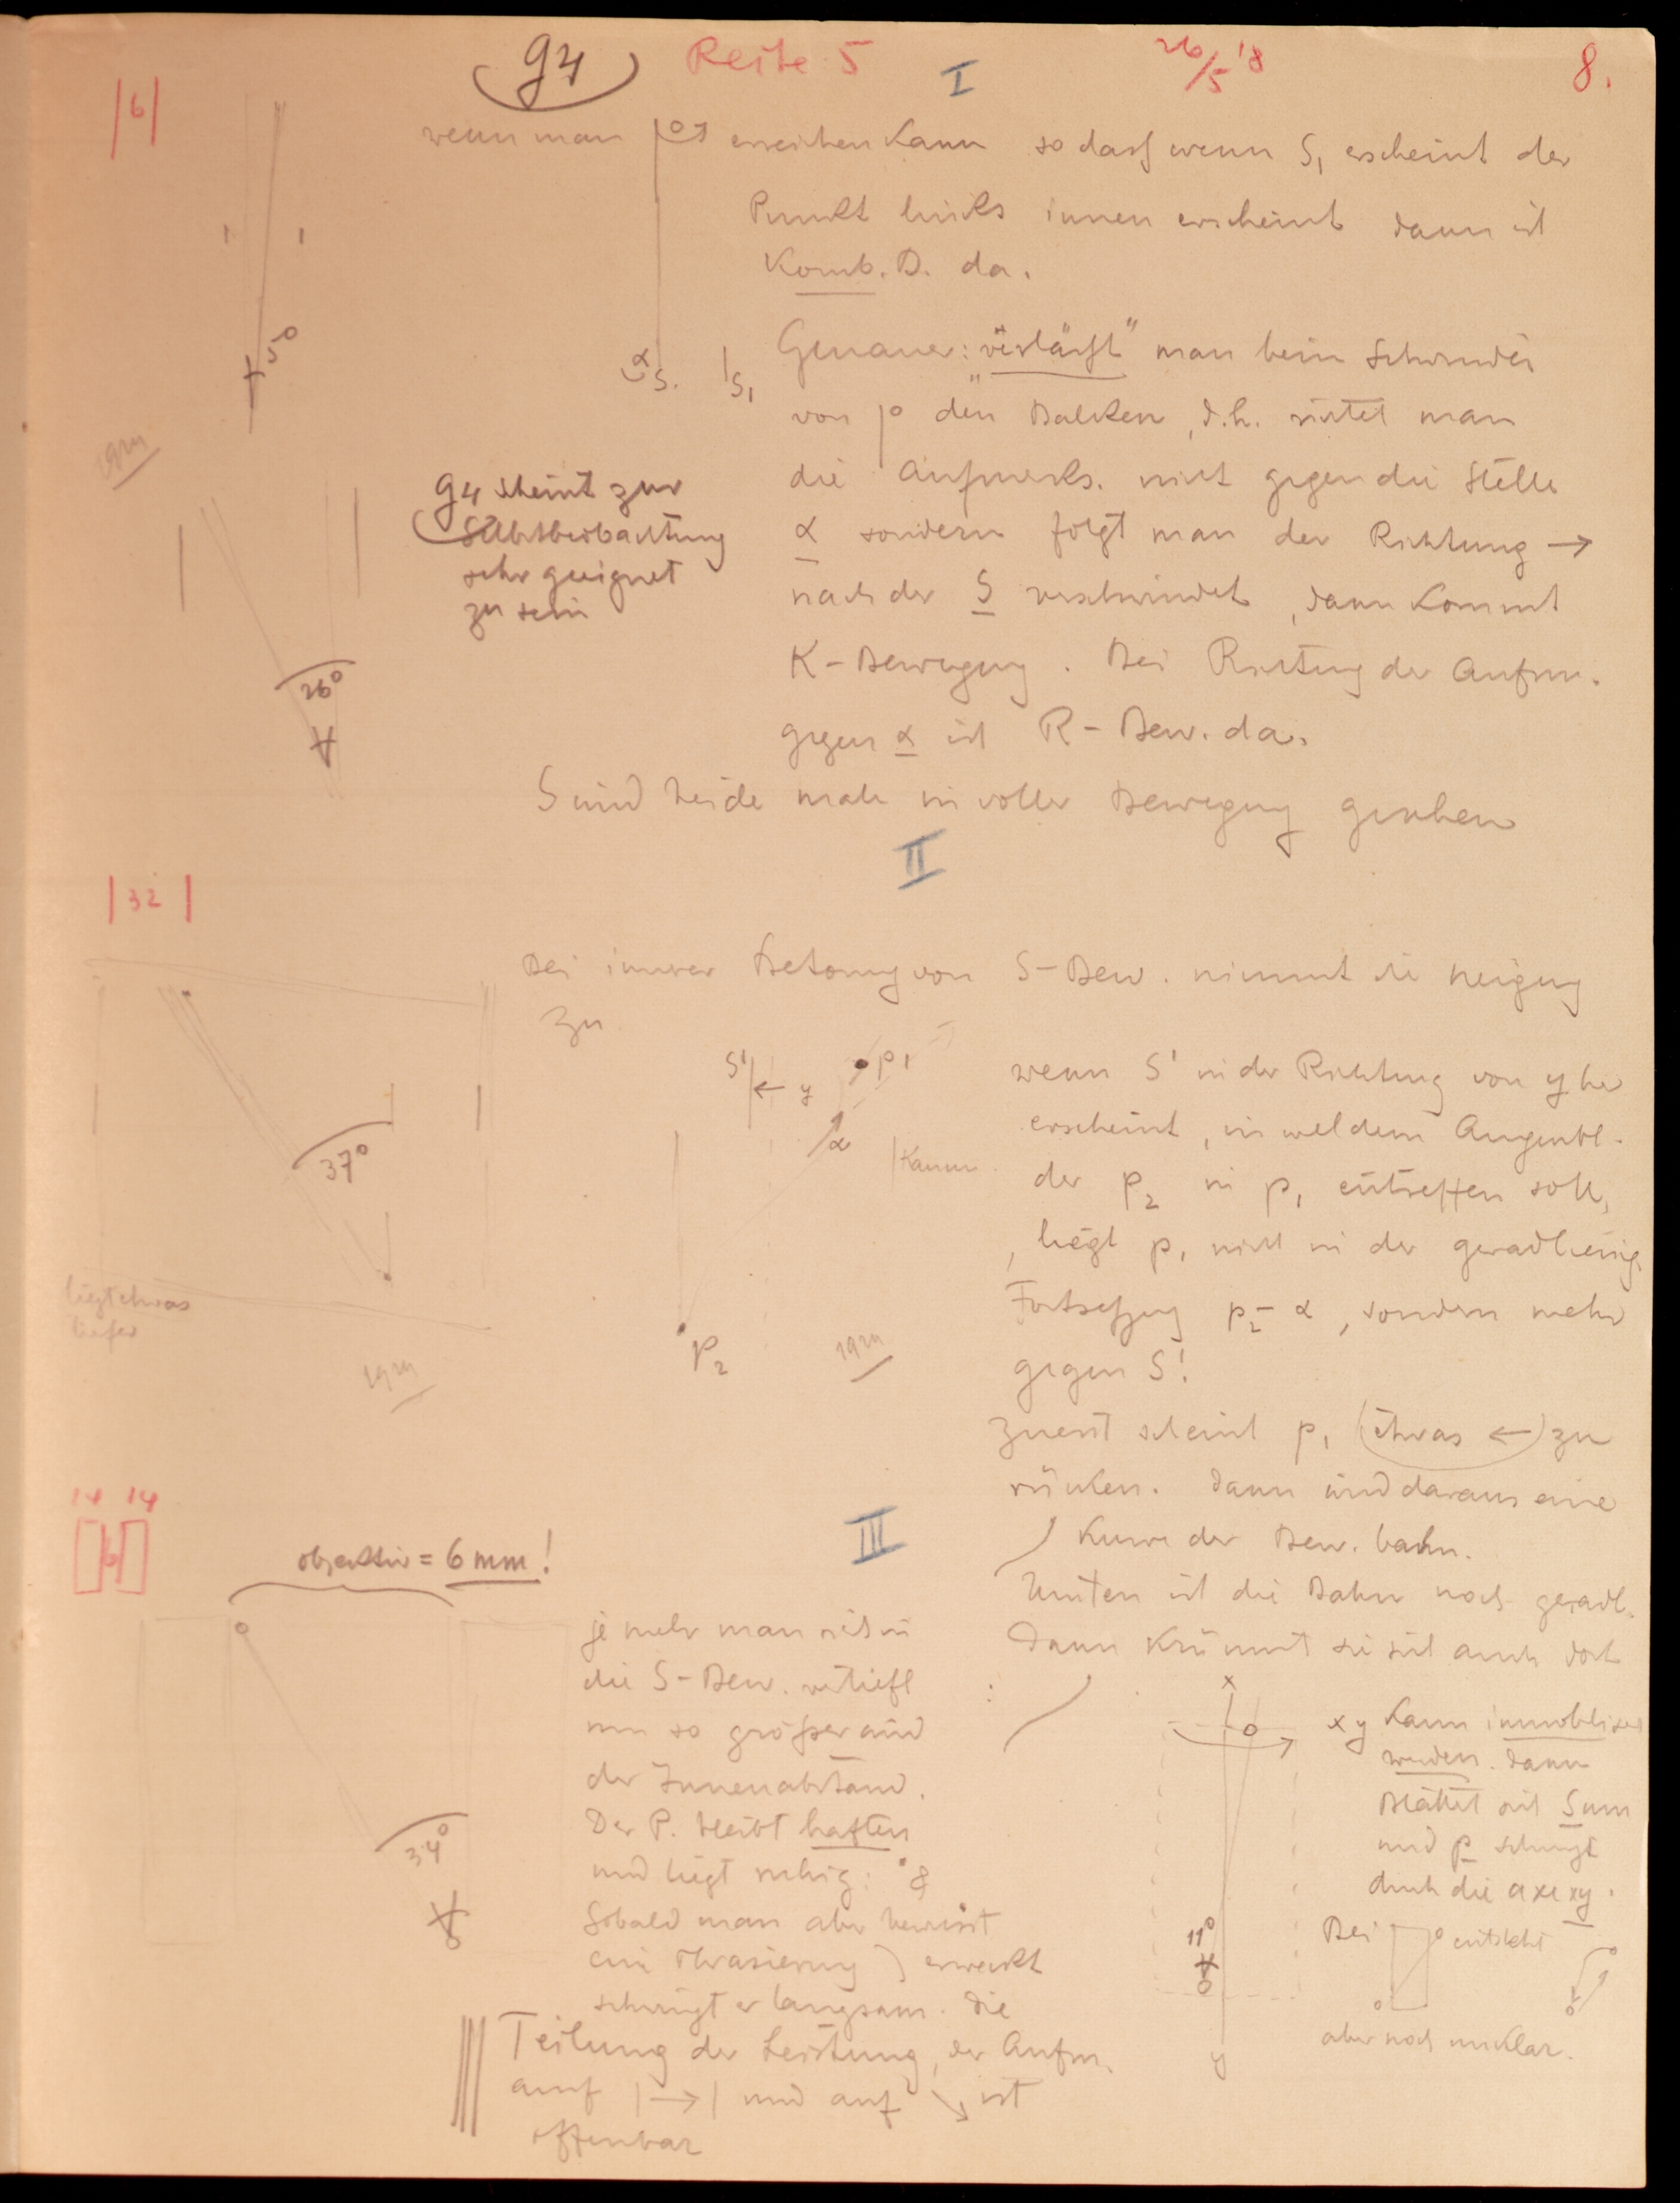 g4 Reihe 5 26/5 '18 8.
I
|6|
wenn man erreichen kann so dass wenn S₁ erscheint der
Punkt links innen erscheint dann ist
Komb. B. da.
5°
α S. S₁
Genauer: "verläßt" man beim Schwinden
von p den Balken, d.h. richtet man
die Aufmerks. nicht gegen die Stelle
α sondern folgt man der Richtung →
nach der S verschwindet, dann kommt
K-Bewegung. Bei Richtung der Aufm.
gegen α ist R-Bew. da.
S wird beide male in voller Bewegung gesehen
g4 scheint zur
Selbstbeobachtung
sehr geeignet
zu sein
26°
II
|32|
Bei innerer Betonung von S-Bew. nimmt die Neigung
zu
S' ← y p₁
α
|Kamm
P₂
37°
liegt etwas
tiefer
wenn S' in der Richtung von y her
erscheint, in welchem Augenbl.
der p₂ in p₁ eintreffen soll,
liegt p₁ nicht in der geradlinig.
Fortsetzung p₂ - α, sondern mehr
gegen S'!
zuerst scheint p₁ (etwas ←) zu
rücken. Dann wird daraus eine
Kurve der Bew. bahn.
Unten ist die Bahn noch geradl.
Dann krümmt sie sich auch dort
III
14 14
6
objektiv = 6 mm!
je mehr man sich in
die S-Bew. vertieft
um so größer wird
der Innenabstand.
Der P. bleibt haften
und liegt ruhig:
Sobald man aber bewusst
eine Phrasierung ) erweckt
schwingt er langsam. Die
Teilung der Leistung, der Aufm.
auf |→| und auf ↘ ist
offenbar
34°
x
y
11°
xy kann
werden. Dann
S um
und p schwingt
durch die axe xy.
Bei entsteht
aber noch unklar.